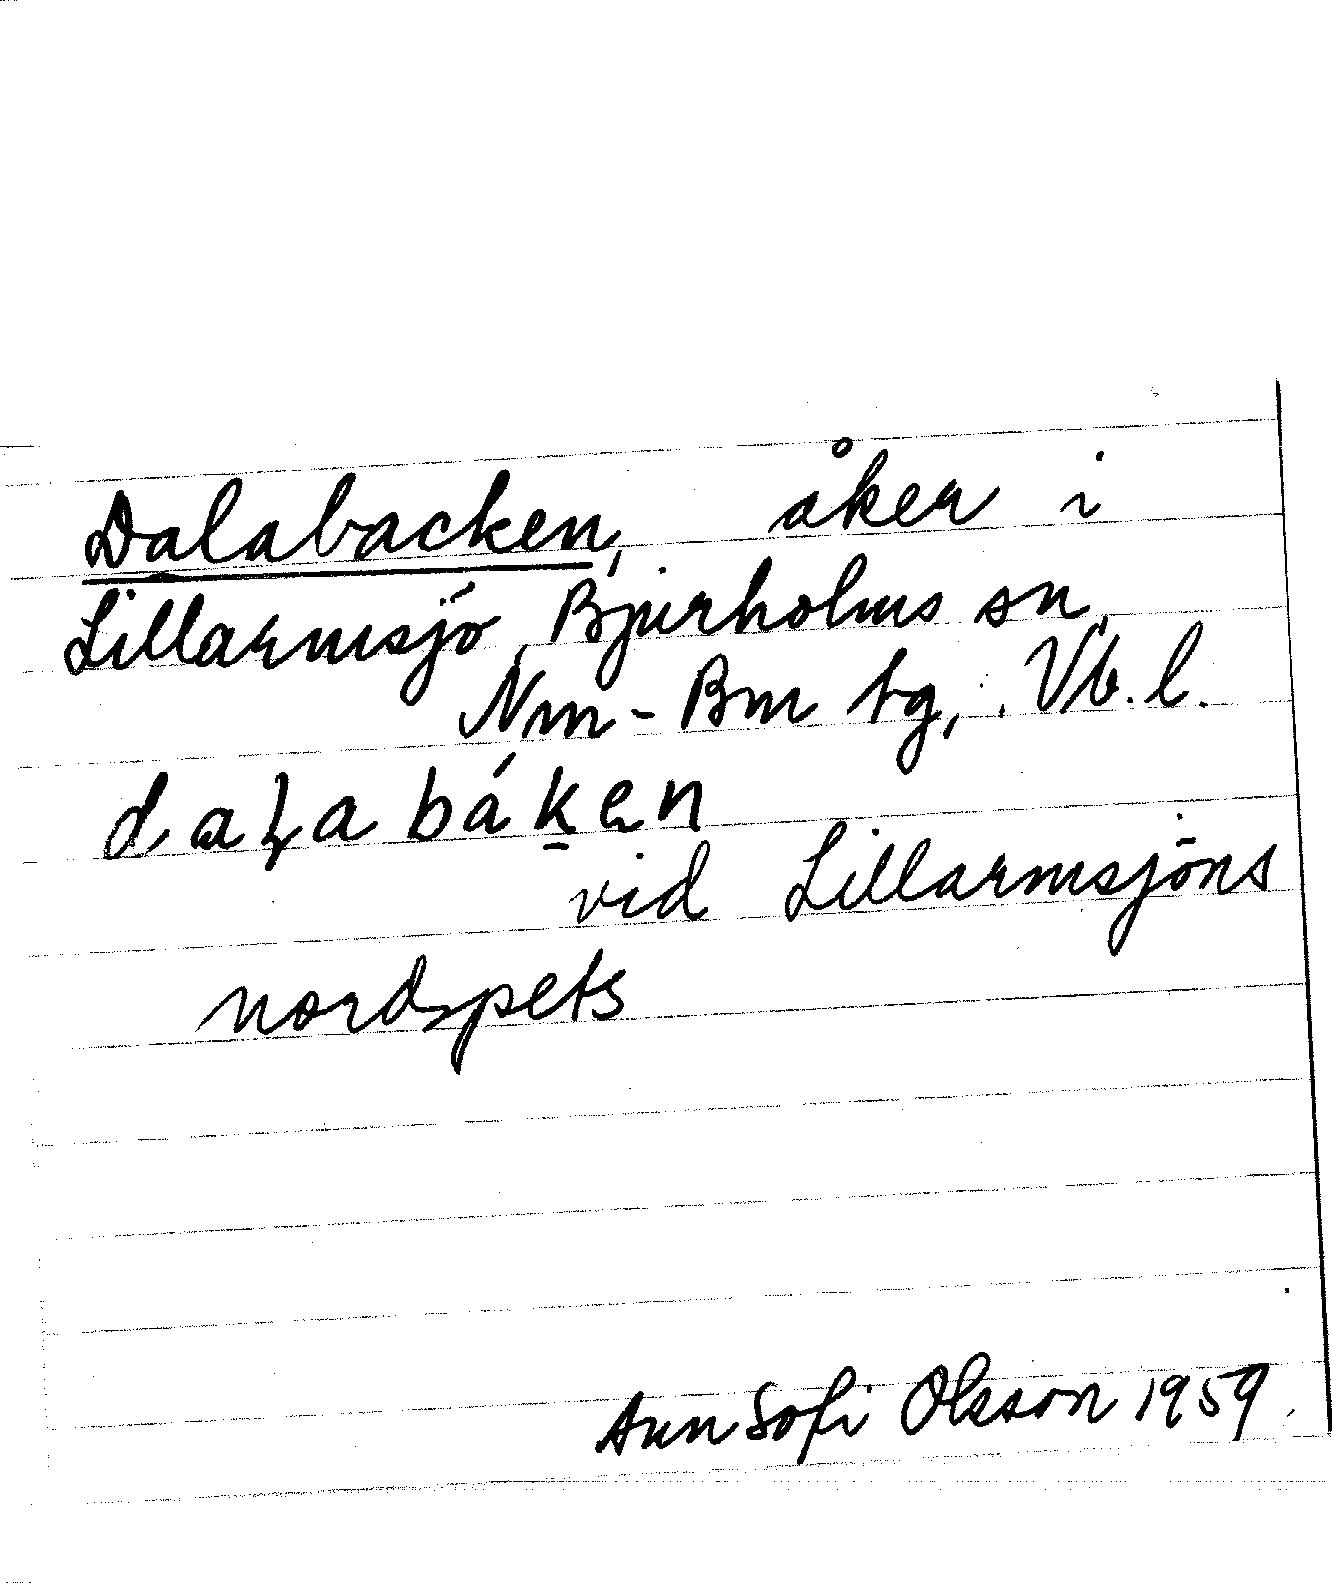 Dalabacken, åker i
Lillarmsjö, Bjurholms sn,
Nm-Bm tg, Vb. l.
daɽabák̠en
vid Lillarmsjöns
nordspets
Ann Sofi Olsson 1959.